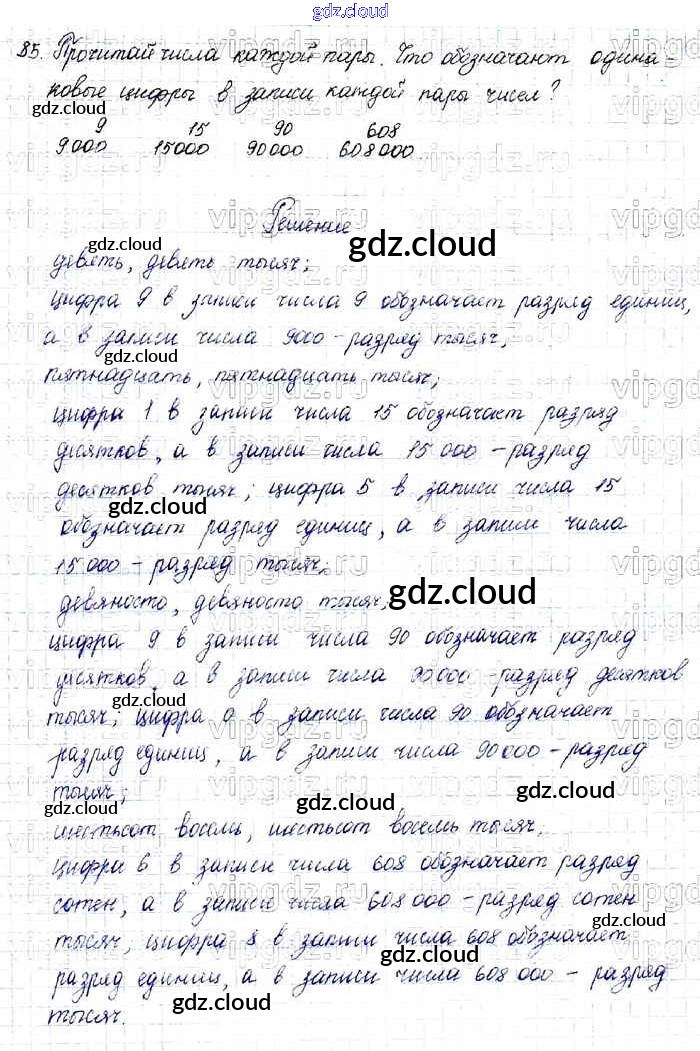 gdz.cloud
85. Прочитай числа каждой пары. Что обозначают одина-
ковые цифры в записи каждой пары чисел?
9 15 90 608
9000 15000 90000 608000.
Решение
девять, девять тысяч;
цифра 9 в записи числа 9 обозначает разряд единиц,
а в записи числа 9000 - разряд тысяч;
пятнадцать, пятнадцать тысяч;
цифра 1 в записи числа 15 обозначает разряд
десятков, а в записи числа 15 000 - разряд
десятков тысяч; цифра 5 в записи числа 15
обозначает разряд единиц, а в записи числа
15 000 - разряд тысяч;
девяносто, девяносто тысяч;
цифра 9 в записи числа 90 обозначает разряд
десятков, а в записи числа 90000 - разряд десятков
тысяч; цифра 0 в записи числа 90 обозначает
разряд единиц, а в записи числа 90000 - разряд
тысяч;
шестьсот восемь, шестьсот восемь тысяч.
Цифра 6 в записи числа 608 обозначает разряд
сотен, а в записи числа 608 000 - разряд сотен
тысяч, цифра 8 в записи числа 608 обозначает
разряд единиц, а в записи числа 608 000 - разряд
тысяч.